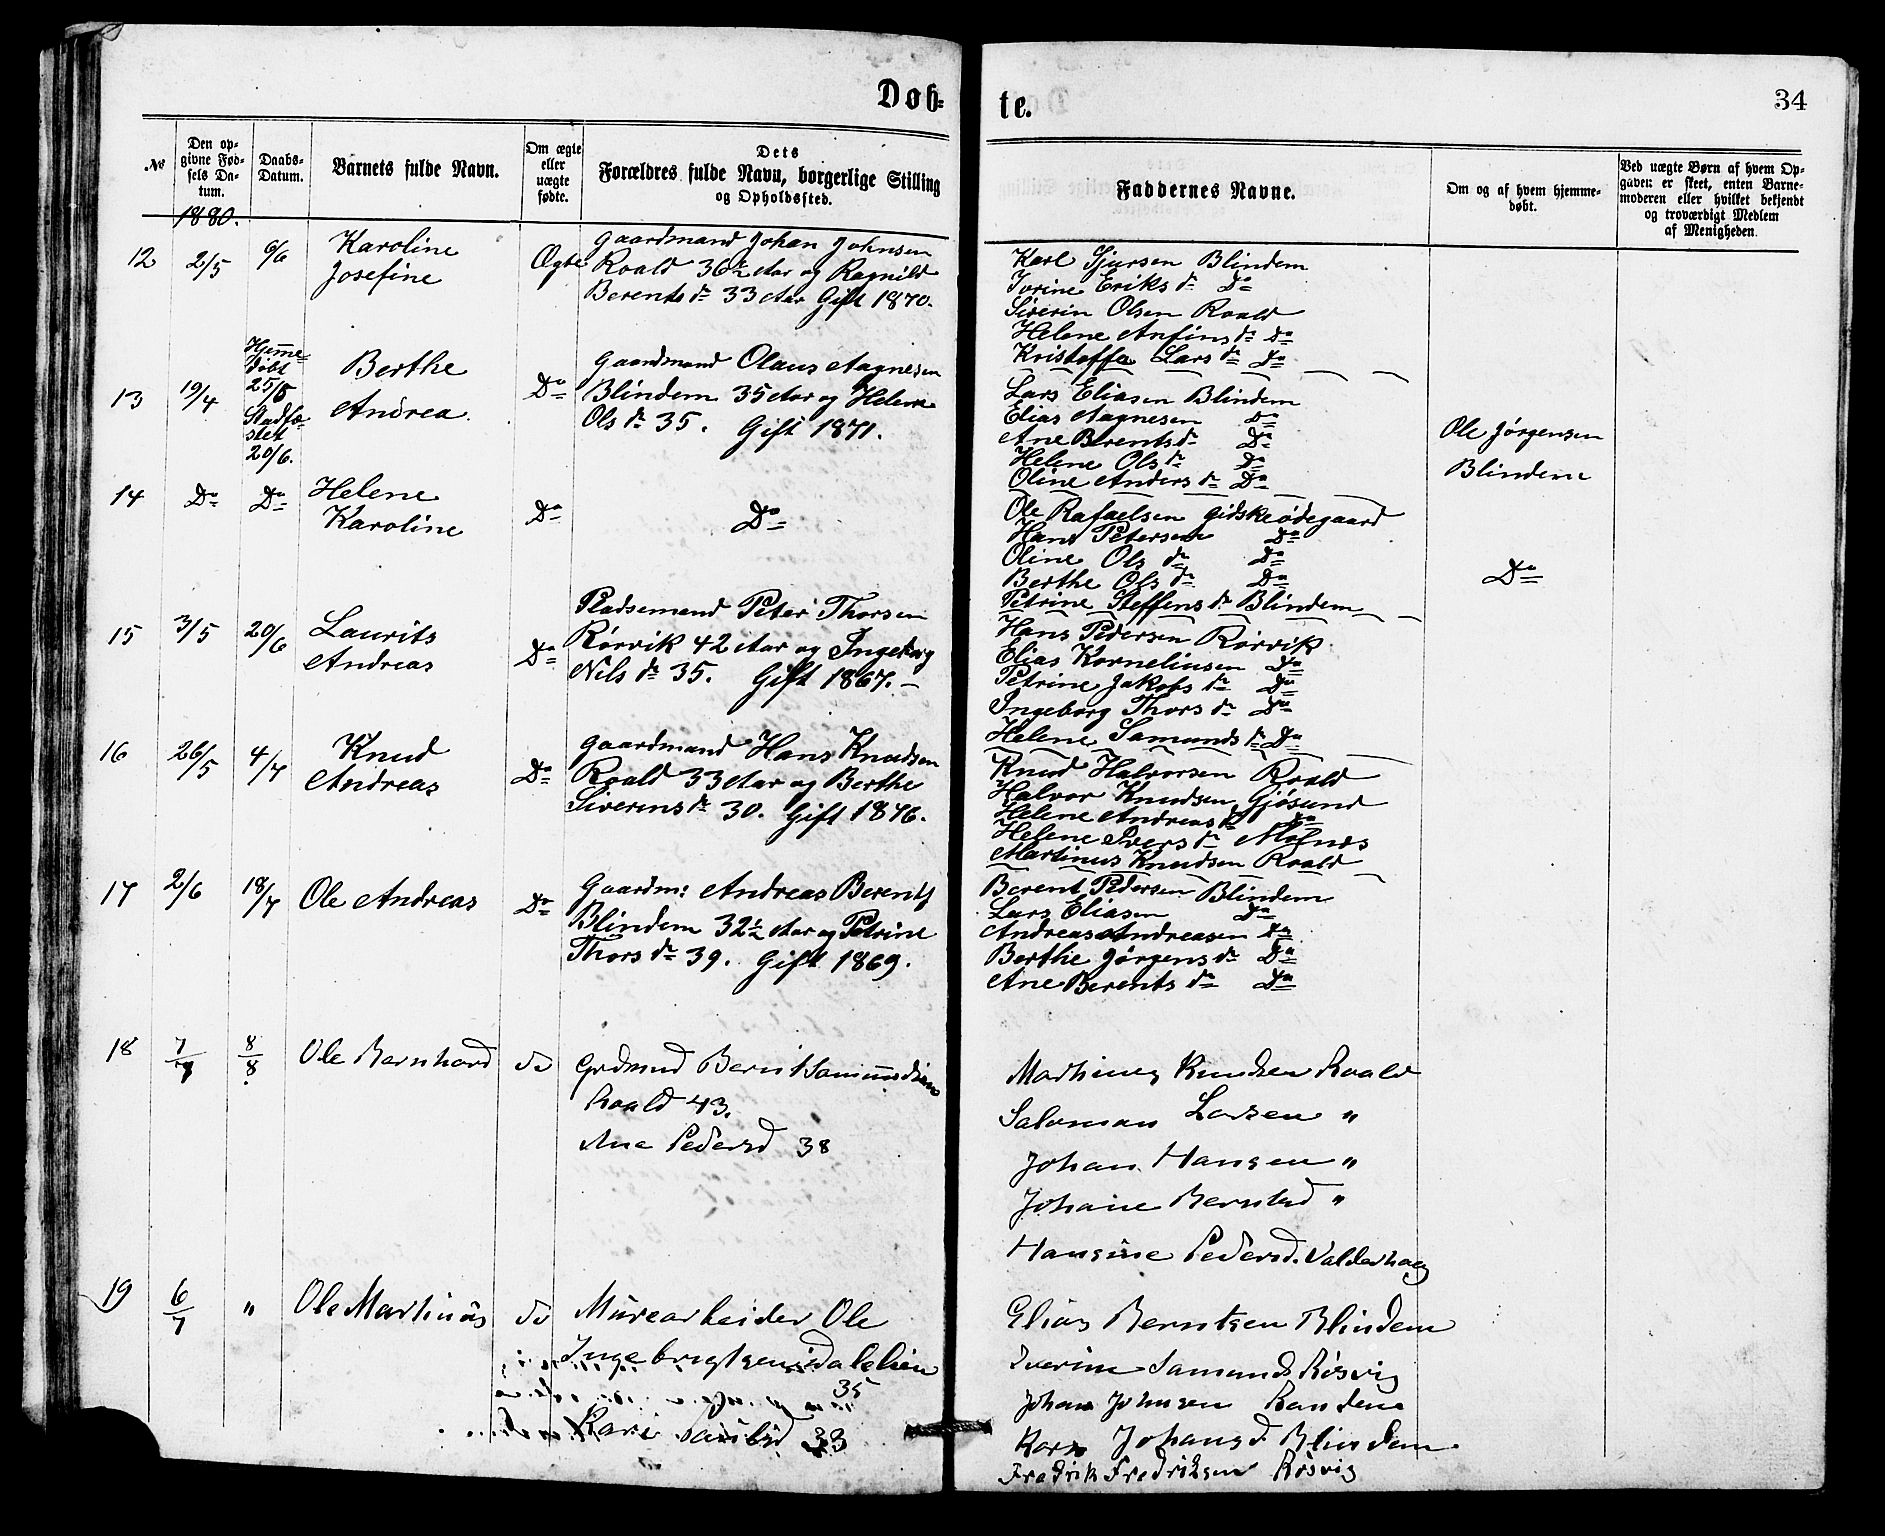 Døb-
te.
34
№
Den op-
givne Fød-
sels Da-
tum.
Daabs-
Datum.
Barnets fulde Navn.
Om ægte
eller
uægte
fødte.
Dets
Forældres fulde Navn, borgerlige Stilling
og Opholdssted.
Faddernes Navne.
Om og af hvem hjemme-
døbt.
Ved uægte Børn af hvem Op-
gaven er skeet, enten Barne-
moderen eller hvilket bekjendt
og troværdigt Medlem
af Menigheden.
1880.
12 2/5 6/6
Karoline
Josefine
Ægte
Gaardmand Johan Johnsen
Roald 36½ Aar og Ragnild
Berents dr 33 Aar Gift 1870.
Karl Sjursen Blindem
Iorine Eriks dr Do
Siverin Olsen Roald
Helene Anfins dr Do
Kristoffa Lars dr Do
13 19/4
Hjemme-
døbt
25/5
Stadfæ-
stet
20/6.
Berthe
Andrea
Do
Gaardmand Olaus Aagnesen
Blindem 35 Aar og Helene
Ols dr 35. Gift 1871.
Lars Eliasen Blindem
Elias Aagnesen Do
Ane Berents dr Do
Helene Ols dr Do
Oline Anders dr Do
Ole Jørgensen
Blindem
14 Do Do
Helene
Karoline
Do
Do
Ole Rafaelsen Gidskeødegaard
Hans Petersen Do
Oline Ols dr Do
Berthe Ols dr Do
Petrine Steffens dr Blindem
Do
15 3/5 20/6
Laurits
Andreas
Do
Pladsemand Peter Thorsen
Rørvik 42 Aar og Ingeborg
Nils dr 35. Gift 1867. –
Hans Pedersen Rørvik
Elias Korneliusen Do
Petrine Jakobs dr Do
Ingeborg Thors dr Do
Helene Samunds dr Do
16 26/5 4/7
Knud
Andreas
Do
Gaardmand Hans Knudsen
Roald 33 Aar og Berthe
Siverins dr 30. Gift 1876.
Knud Halvorsen Roald
Halvor Knudsen Gjøsund
Helene Andreas dr Do
Helene Ivers dr Molnes
Martinus Knudsen Roald
17 2/6 18/7
Ole Andreas
Do
Gaardm: Andreas Berents
Blindem 32½ Aar og Petrine
Thors dr 39. Gift 1869.
Berent Pedersen Blindem
Lars Eliasen Do
Andreas Andreasen Do
Berthe Jørgens dr Do
Ane Berents dr Do
18 7/7 8/8
Ole Bernhard
do
Grdmnd Bernt Samundsen
Roald 43.
Ane Pedersd 38
Martinus Knudsen Roald
Salomon Larsen "
Johan Hansen "
Johane Berntsd "
Hansine Pedersd. Valderhaug
19 6/7 "
Ole Martinus
do
Murearbeider Ole
Ingebrigtsen Dalelien
35
Kari 33
Elias Berntsen Blindem
Iverine Samunds Røsvig
Johan Johnsen
Karn Johansd Blindem
Fredrik Fredriksen Røsvig